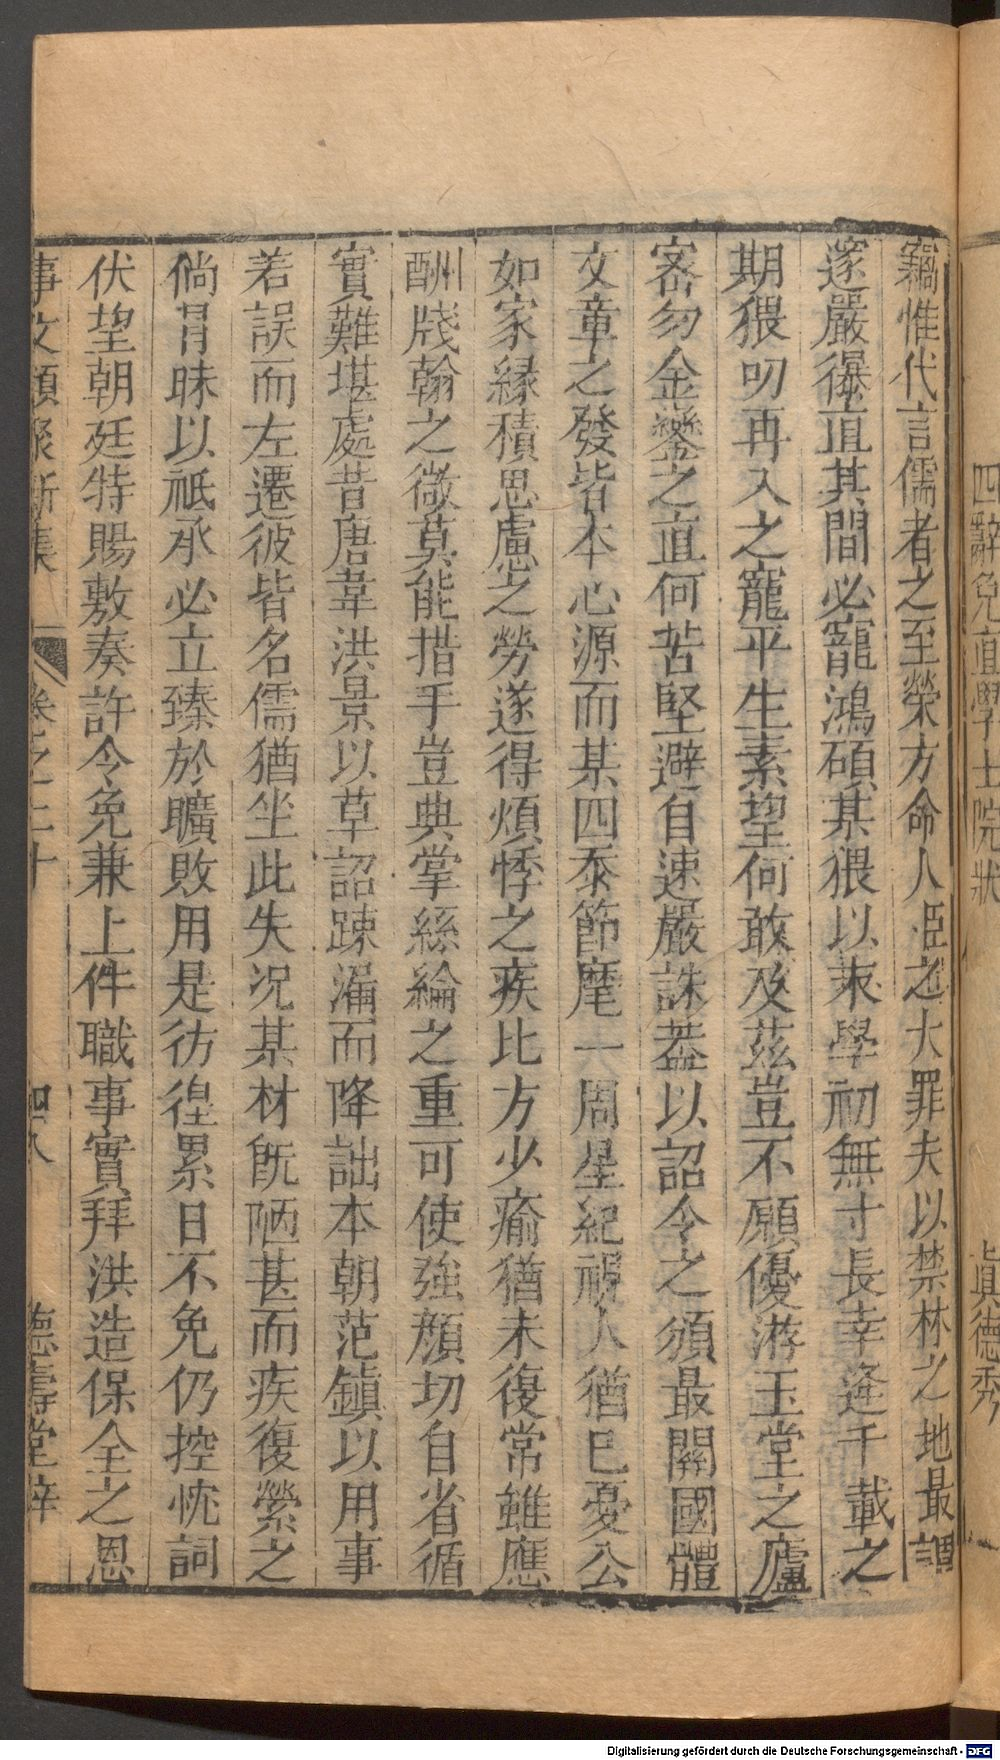 四辭免直學士院狀　眞德秀
竊惟代言儒者之至榮方命人臣之大罪夫以禁林之地最
邃嚴儤直其間必寵鴻碩某猥以末學初無寸長幸逢千載之
期猥叨再入之寵平生素望何敢及茲豈不願優游玉堂之廬
密勿金鑾之直何苦堅避自速嚴誅蓋以詔令之頒最關國體
文章之發皆本心源而某四忝節麾一周星紀視人猶己憂公
如家緣積思慮之勞遂得煩悸之疾比方少瘉猶未復常雖應
酬牋翰之微莫能措手豈典掌絲綸之重可使強顏切自省循
實難堪處昔唐韋洪景以草詔踈漏而降詘本朝范鎮以用事
差誤而左遷彼皆名儒猶坐此失况某材旣陋甚而疾復縈之
倘冐昧以祗承必立臻於曠敗用是彷徨累日不免仍控忱詞
伏望朝廷特賜敷奏許令免兼上件職事實拜洪造保全之恩
事文類聚新集　卷之二十　四八　德壽堂梓
Digitalisierung gefördert durch die Deutsche Forschungsgemeinschaft - DFG